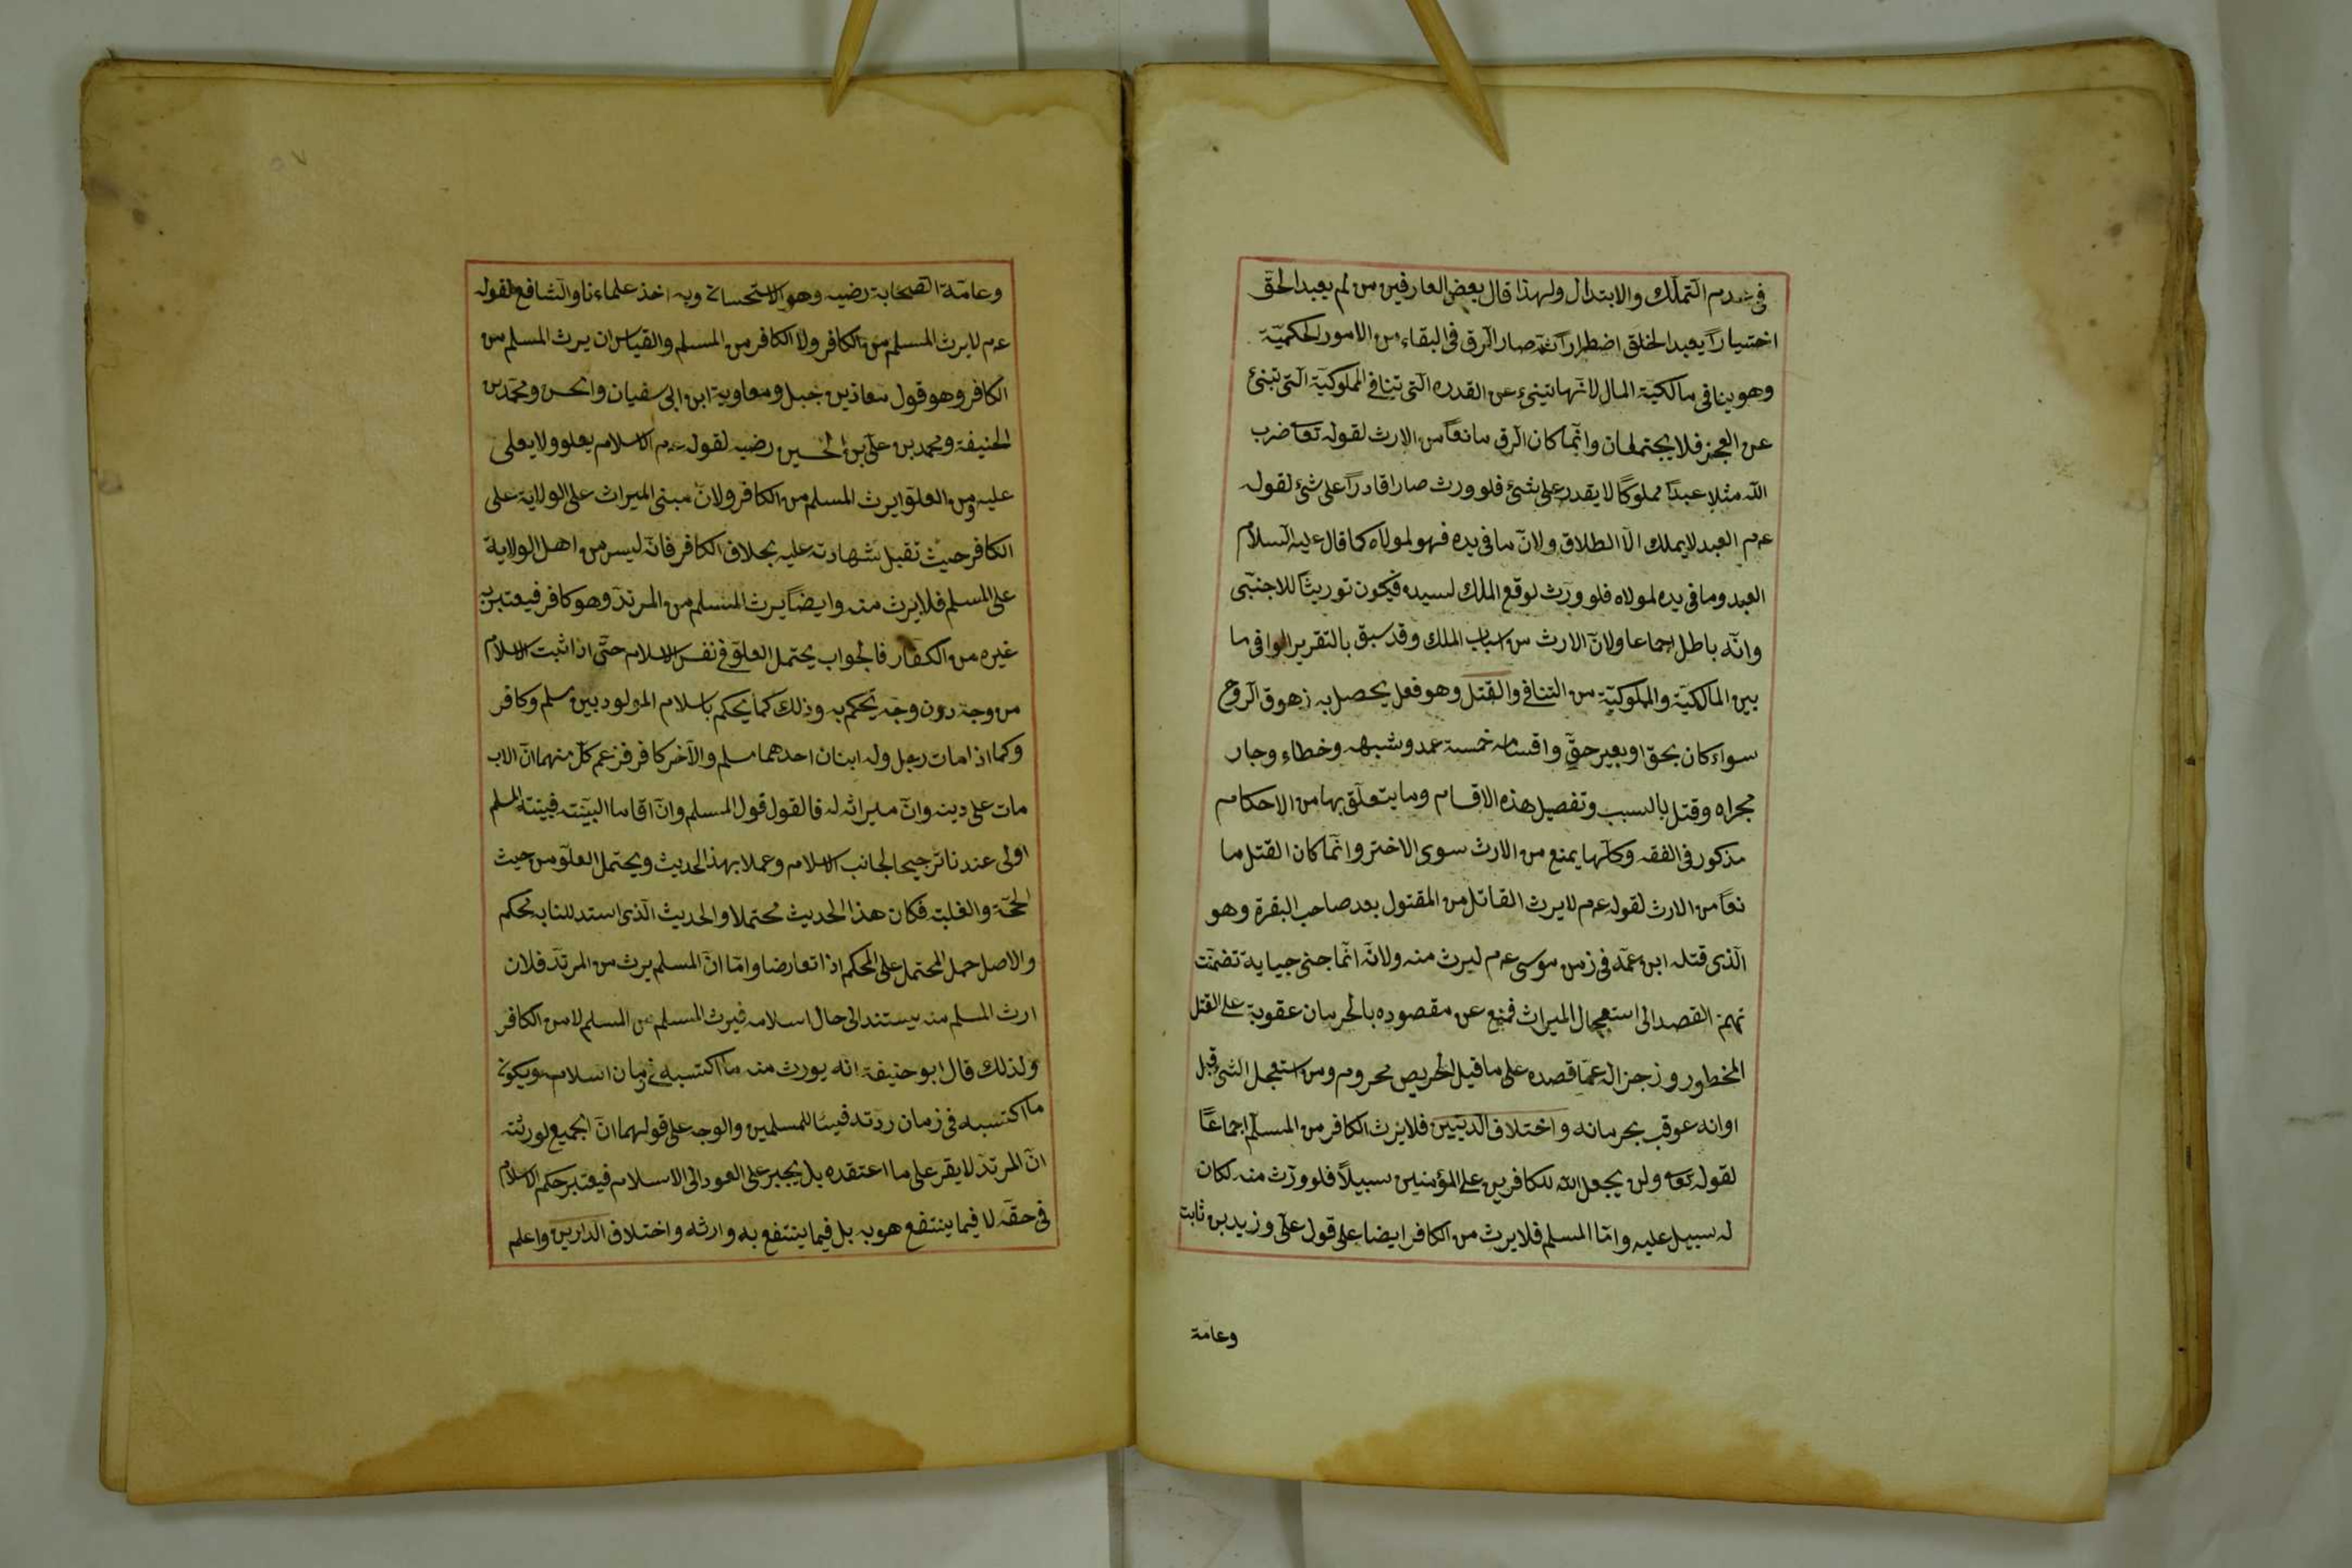 في عدم التملّك والابتدال ولهذا قال بعض العارفين من لم يعبد الحقّ
اختياراً يعبد الخلق اضطراراً ثمّ صار الرّق في البقاء من الامور الحكميّة
وهو ينافي مالكيّة المال لانّها تنبئ عن القدره الّتي تنافي المملوكيّة الّتي تنبئ
عن العجز فلا يجتمعان وانّما كان الرّق مانعاً من الارث لقوله تعا ضرب
الله مثلا عبداً مملوكاً لا يقدر على شئ فلو ورث صار اقادراً على شئ لقوله
عم العبد لا يملك الّا الطلاق ولانّ ما في يده فهو لمولاه كما قال عليه السلام
العبد وما في يده لمولاه فلو ورّث لوقع الملك لسيده فيكون توريثاً للاجنبّى
وانّه باطل اجماعا ولانّ الارث من اسباب الملك وقد سبق بالتقرير الوافي ما
بين المالكيّة والمملوكيّة من التنافي والقتل وهو فعل يحصل به زهوق الرّوح
سواء كان بحقّ او بغير حقّ واقسامه خمسة عمد وشبهه وخطاء وجار
مجراه وقتل بالسبب وتفصيل هذه الاقسام وما يتعلّق بها من الاحكام
مذكور في الفقه وكلّها يمنع من الارث سوى الاخير وانّما كان القتل ما
نعاً من الارث لقوله عم لا يرث القاتل من المقتول بعد صاحب البقرة وهو
الّذى قتله ابن عمّه في زمن موسى عم ليرث منه ولانّه انّما جنى جيناية تضمّنت
تهمة القصد الى استعجال الميراث فمنع عن مقصوده بالحرمان عقوبة على القتل
المخطور وزجزاله عمّا قصده على ما قيل الحريص محروم ومن استعجل الشئ قبل
اوانه عوقب بحرمانه واختلاف الدّينين فلا يرث الكافر من المسلم اجماعاً
لقوله تعا ولن يجعل الله للكافرين على المؤمنين سبيلاً فلو ورّث منه لكان
له سبيل عليه وامّا المسلم فلا يرث من الكافر ايضا على قول علّى وزيد بن ثابت
وعامّة
وعامّة الصّحابة رضيه وهو الاستحسان وبه اخذ علماءنا والشافع لقوله
عم لا يرث المسلم من الكافر ولا الكافر من المسلم والقياس ان يرث المسلم من
الكافر وهو قول معاذ بن جبل ومعاوية ابن ابي سفيان والحسن ومحمّد بن
الحنيفة ومحمد بن علّى بن الحسين رضيه لقوله عم الاسلام يعلو ولا يعلى
عليه ومن العلوّ ايرث المسلم من الكافر ولانّ مبنى الميراث على الولاية على
الكافر حيث تقبل شهادته عليه بخلاف الكافر فانّه ليس من اهل الولاية
على المسلم فلا يرث منه وايضاً يرث المسلم من المرتدّ وهو كافر فيعتبر به
غيره من الكفّار فالجواب يحتمل العلوّ في نفس الاسلام حتّى اذا ثبت الاسلام
من وجة دون وجّه يحكم به وذلك كما يحكم باسلام المولود بين مسلم وكافر
وكما اذا مات رجل وله ابنان احدهما مسلم والآخر كافر فزعم كلّ منهما انّ الاب
مات على دينه وانّ ميراثه له فالقول قول المسلم وانّ اقاما البيّنته فبينته المسلم
اولى عندنا ترجيحا لجانب الاسلام وعملا بهذا الحديث ويحتمل العلوّ من حيث
الحجّة والغلبة فكان هذا الحديث محتملا والحديث الّذى استدللنا به محكم
والاصل حمل المحتمل على المحكم اذا تعارضا وامّا انّ المسلم يرث من المرتدّ فلان
ارث المسلم منه يستند الى حال اسلامه فيرث المسلم من المسلم لا من الكافر
ولذلك قال ابو حنيفة انّه يورث منه ما اكتسبه في زمان اسلامه ويكون
ما اكتسبه في زمان ردّته فيئا للمسلمين والوجه على قولهما انّ الجميع لورثته
انّ المرتدّ لا يقر على ما اعتقده بل يجبر على العود الى الاسلام فيعتبر حكم الاسلام
في حقّه لا فيما ينتفع هو به بل فيما ينتفع به وارثه واختلاف الدارين واعلم